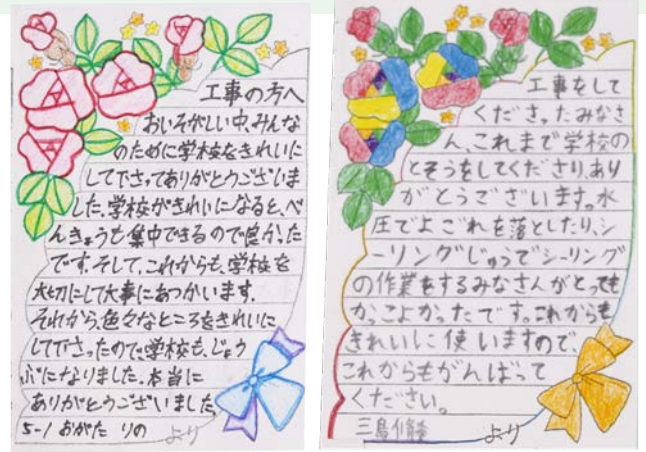 工事の方へ
おいそがしい中、みんな
のために学校をきれいに
して下さってありがとうございま
した。学校がきれいになると、べ
んきょうも集中できるので良かった
です。そして、これからも、学校を
大切にして大事にあつかいます。
それから、色々なところをきれいに
して下さったので、学校も、じょう
ぶになりました。本当に
ありがとうございました。
5-1 おがた りの より
工事をして
くださったみなさ
ん、これまで学校の
とそうをしてくださり、あり
がとうございます。水
圧でよごれを落としたり、シ
ーリングじゅうでシーリング
の作業をするみなさんがとっても
かっこよかったです。これからも
きれいに使いますので、
これからもがんばって
ください。
三島 より